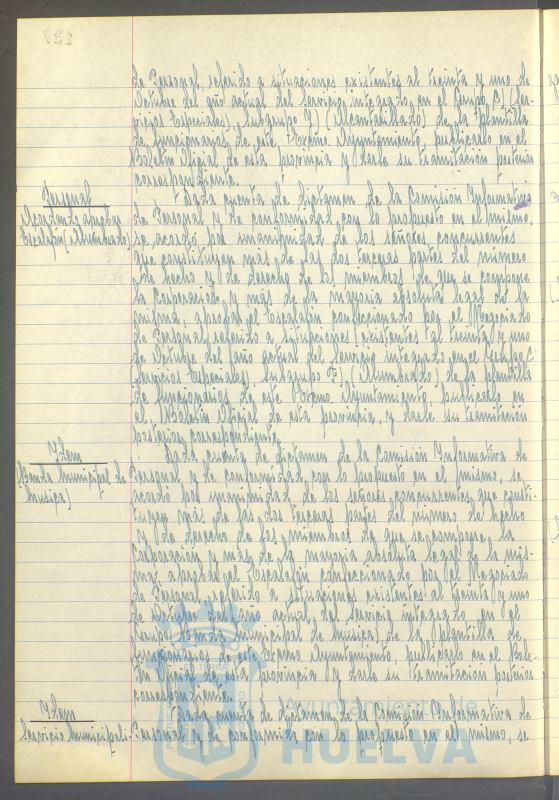 de Personal, referido a situaciones existentes al treinta y uno de
Octubre del año actual del Servicio integrado en el Grupo C) (Ser-
vicios Especiales), Subgrupo Y) (Alcantarillado) de la plantilla
de funcionarios de este Excmo. Ayuntamiento, publicarlo en el
Boletín Oficial de esta provincia y darle su tramitación posterior
correspondiente.
Personal
aprobar
Escalafón (Alumbrado)
Dada cuenta de dictamen de la Comisión Informativa
de Personal y de conformidad con lo propuesto en el mismo,
se acordó por unanimidad de los señores concurrentes
que constituyen más de las dos terceras partes del número
de hecho y de derecho de los miembros de que se compone
la Corporación, y más de la mayoría absoluta legal de la
misma, aprobar el Escalafón confeccionado por el Negociado
de Personal, referido a situaciones existentes al treinta y uno
de Octubre del año actual del Servicio integrado en el Grupo C)
(Servicios Especiales), Subgrupo F) (Alumbrado) de la plantilla
de funcionarios de este Excmo. Ayuntamiento, publicarlo en
el Boletín Oficial de esta provincia, y darle su tramitación
posterior correspondiente.
Ydem
(Banda Municipal de
Musica)
Dada cuenta de dictamen de la Comisión Informativa de
Personal y de conformidad con lo propuesto en el mismo, se
acordó por unanimidad de los señores concurrentes que consti-
tuyen más de las dos terceras partes del número de hecho
y de derecho de los miembros de que se compone la
Corporación y más de la mayoría absoluta legal de la mis-
ma, aprobar el Escalafón confeccionado por el Negociado
de Personal, referido a situaciones existentes al treinta y uno
de Octubre del año actual del Servicio integrado en el
Grupo Banda Municipal de Musica, de la plantilla de
funcionarios de este Excmo. Ayuntamiento, publicarlo en el Bole-
tín Oficial de esta provincia y darle su tramitación posterior
correspondiente.
Ydem
Servicio Municipali-
Dada cuenta de dictamen de la Comisión Informativa de
Personal y de conformidad con lo propuesto en el mismo, se
Ayuntamiento de
HUELVA